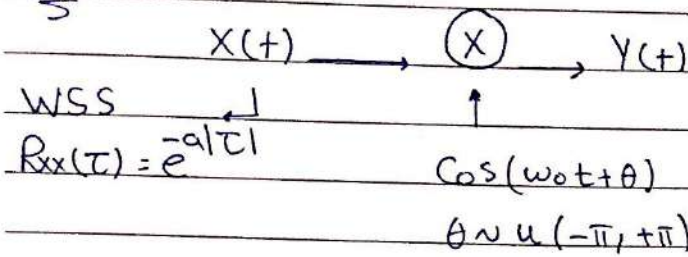 5
X(t) → (X) → Y(t)
WSS
Rxx(τ) = e^-a|τ|
Cos(ω₀t+θ)
θ ~ u(-π, +π)